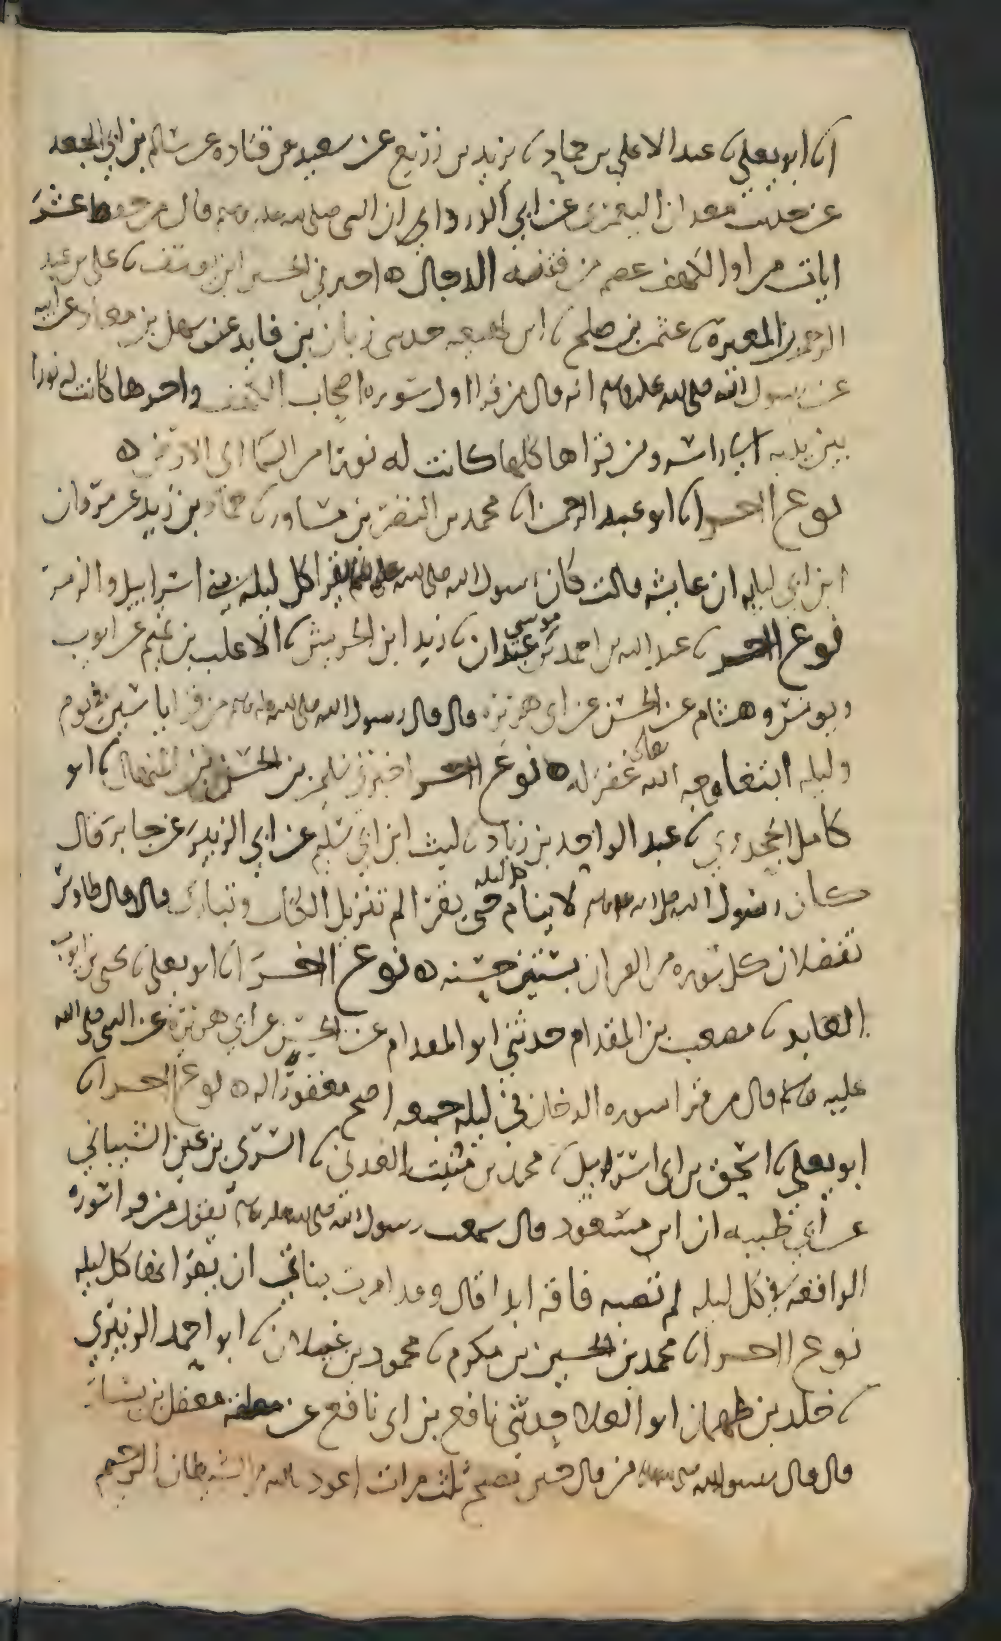 انا ابو يعلى نا عبد الاعلى بن حماد نا يزيد بن زريع عن سعيد عن قتاده عن سالم بن ابي الجعد
عن حديث معدان اليعمري عن ابي الدرداي ان النبي صلى الله عليه وسلم قال من حفظ عشر
ايات من اول الكهف عصم من فتنه الدجال ه اخبرني الحسين ابن يوسف نا علي بن عبد
الرحمن بن المغيره نا عثمن بن صلح نا ابن لهيعه حدثني زبان بن فايد عن سهل بن معاذ عن ابيه
عن رسول الله صلى الله عليه وسلم انه قال من قرا اول سوره اصحاب الكهف واخرها كانت له نورا
بين يديه الى راسه ومن قراها كلها كانت له نورا من السما الى الارض ه
نوع اخر انا ابو عبد الرحمن انا محمد بن النضر بن مساور نا حماد بن زيد عن مروان
ابن ابي لبابه ان عايشه قالت كان رسول الله صلى الله عليه وسلم يقرا كل ليله بني اسراييل والزمر
نوع اخر نا عبد الله بن احمد بن موسى عبدان نا زيد ابن الحريش نا الاغلب بن تميم عن ايوب
ويونس وهشام عن الحسن عن ابي هريره قال قال رسول الله صلى الله عليه وسلم من قرا ياسين في يوم
وليله ابتغا وجه الله تعالى غفر له ه نوع اخر اخبرني سلم بن الحسن بن المنهال نا ابو
كامل الجحدري نا عبد الواحد بن زياد نا ليث ابن ابي سليم عن ابي الزبير عن جابر قال
كان رسول الله صلى الله عليه وسلم لا ينام كل ليله حتى يقرا الم تنزيل الكتاب وتبارك قال وقال طاوس
تفضلان كل سوره من القران بستين حسنه ه نوع اخر انا ابو يعلى نا يحيى بن ايوب
العابد نا مصعب بن المقدام حدثني ابو المقدام عن الحسن عن ابي هريره عن النبي صلى الله
عليه وسلم قال من قرا سوره الدخان في ليله جمعه اصبح مغفورا له ه نوع اخر انا
ابو يعلى نا اسحق بن ابي اسراييل نا محمد بن منيب العدني نا السري بن عين الشيباني
عن ابي طيبه ان ابن مسعود قال سمعت رسول الله صلى الله عليه وسلم يقول من قرا سوره
الواقعه في كل ليله لم تصبه فاقه ابدا قال وقد امرت بناتي ان يقرانها كل ليله
نوع اخر انا محمد بن الحسين بن مكرم نا محمود بن غيلان نا ابو احمد الزبيري
نا خلد بن طهمان ابو العلا حدثني نافع بن ابي نافع عن معقل بن يسار
قال قال رسول الله صلى الله عليه من قال حين يصبح ثلث مرات اعوذ بالله من الشيطان الرجيم